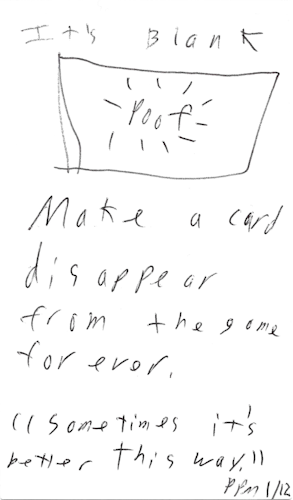 It's Blank
Poof
Make a card
disappear
from the game
forever.
"Sometimes it's
better this way."
PPM 1/12